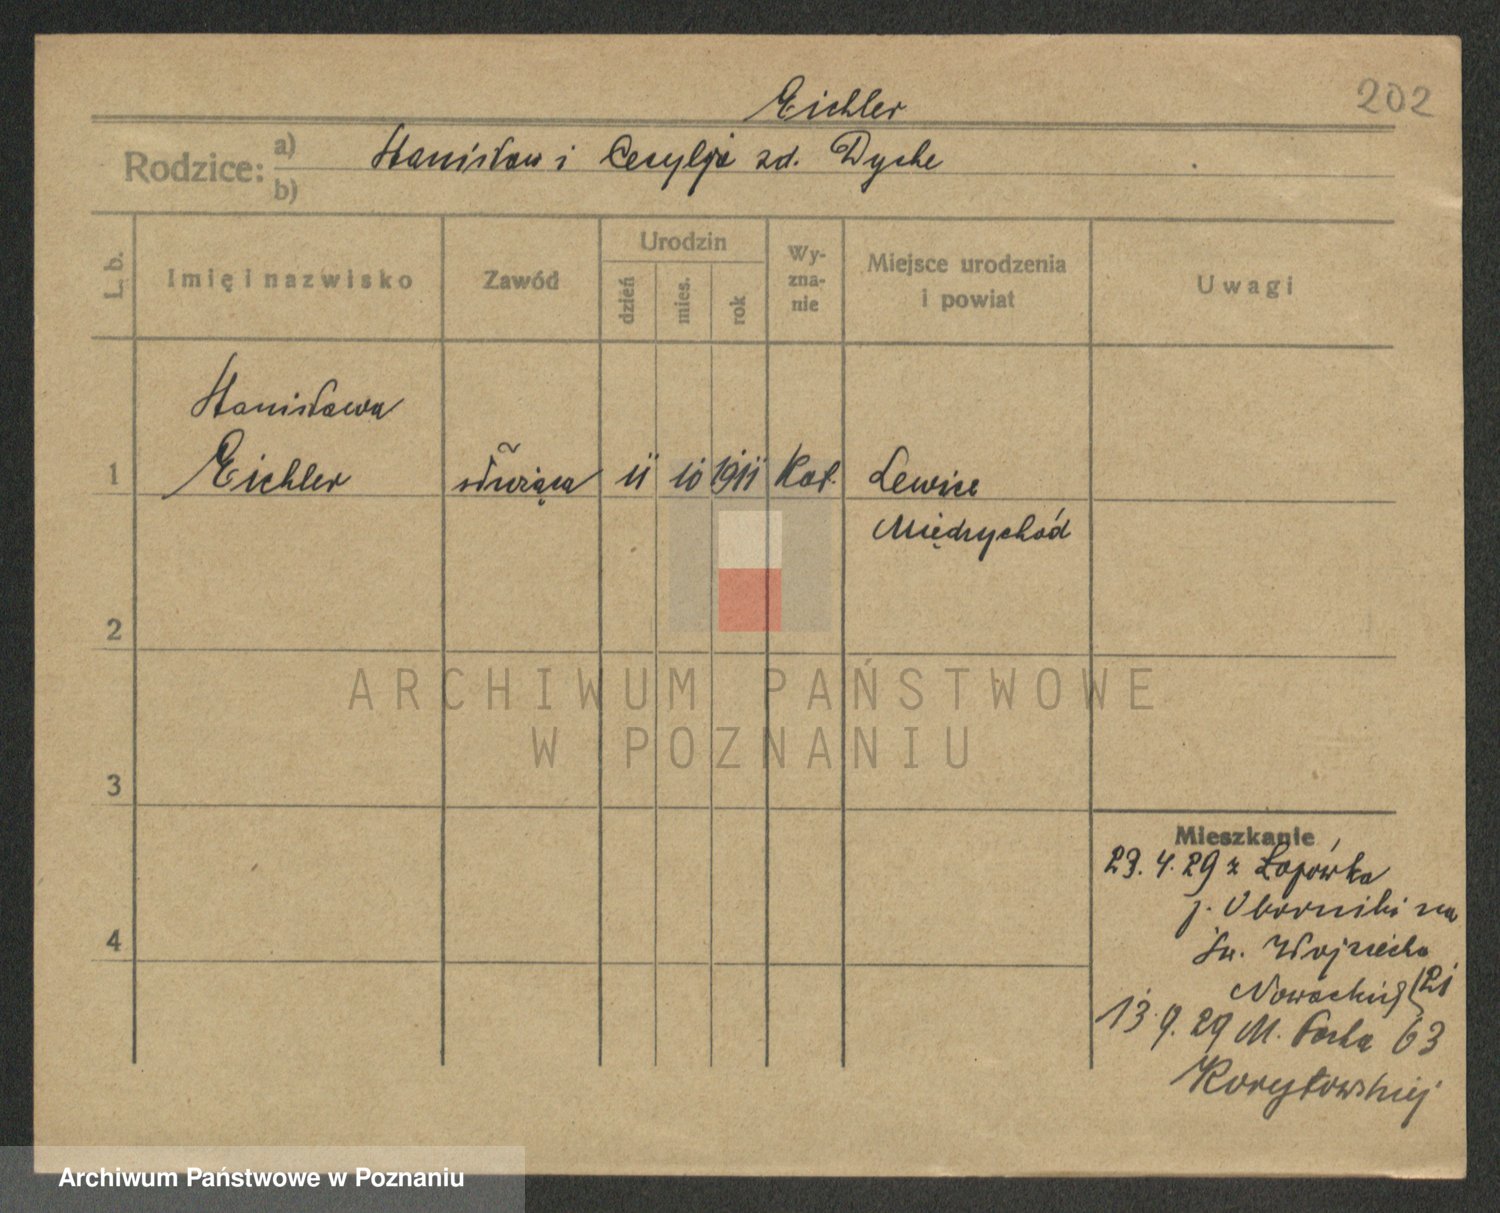 202
Eichler
Rodzice: a) b)
Stanisław i Cecylja zd. Dyche
L. b.
Imię i nazwisko
Zawód
Urodzin
dzień
mies.
rok
Wy-
zna-
nie
Miejsce urodzenia
i powiat
Uwagi
Stanisława
1 Eichler służąca 11 10 1911 Kat. Lewice
Międzychód
2
3
4
ARCHIWUM PAŃSTWOWE
W POZNANIU
Mieszkanie
23.4.29 z Łopówka
p. Oborniki na
Św. Wojciecha
21
13.9.29 M. Focha 63
Korytowskiej
Archiwum Państwowe w Poznaniu